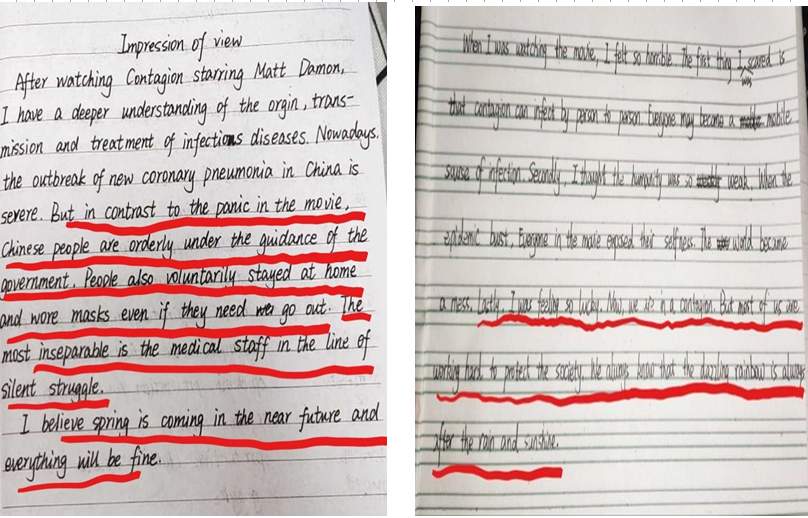 Impression of view
After watching Contagion starring Matt Damon,
I have a deeper understanding of the orgin, trans-
mission and treatment of infectious diseases. Nowadays.
the outbreak of new coronary pneumonia in China is
severe. But in contrast to the panic in the movie,
Chinese people are orderly under the guidance of the
government. People also voluntarily stayed at home
and wore masks even if they need go out. The
most inseparable is the medical staff in the line of
silent struggle.
I believe spring is coming in the near future and
everything will be fine.
When I was watching the movie, I felt so horrible. The first thing I was scared is
that contagion can infect by person to person. Everyone may become a mobile
sourse of infection. Secondly, I thought the humanity was so weak. When the
epidemic bust, Everyone in the movie exposed their selfness. The world became
a mess. Lastly, I was feeling so lucky. Now we in a contagion. But most of us are
working hard to protect the society. We always know that the dazzling rainbow is always
after the rain and sunshine.